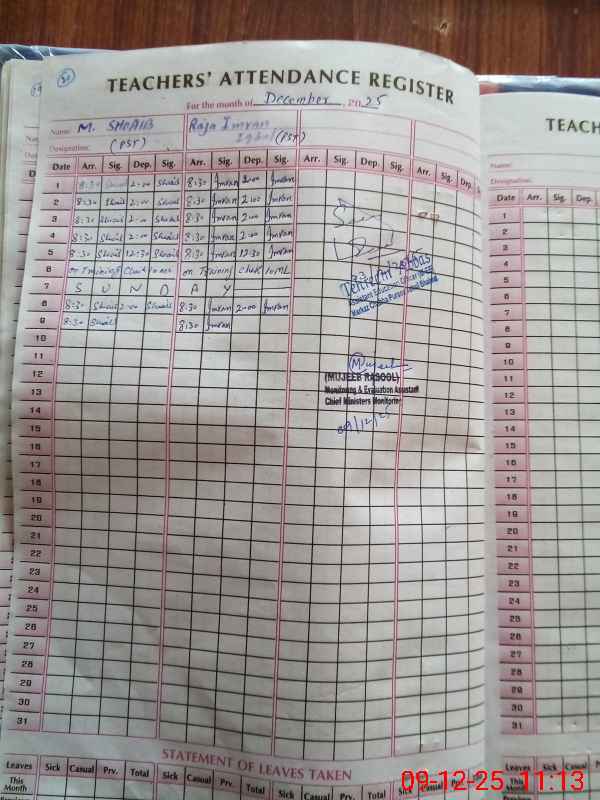 31
TEACHERS' ATTENDANCE REGISTER
For the month of December, 2025
Name: M. SHOAIB Raja Imran
Designation: (PST) Iqbal (PST)
Date Arr. Sig. Dep. Sig. Arr. Sig. Dep. Sig. Arr. Sig. Dep. Sig. Arr. Sig. Dep. Sig.
1 8:30 Shoaib 2:00 Shoaib 8:30 Imran 2:00 Imran
2 8:30 Shoaib 2:00 Shoaib 8:30 Imran 2:00 Imran
3 8:30 Shoaib 2:00 Shoaib 8:30 Imran 2:00 Imran
4 8:30 Shoaib 2:00 Shoaib 8:30 Imran 2:00 Imran
5 8:30 Shoaib 12:30 Shoaib 8:30 Imran 12:30 Imran
6 on Training on Training
7 S U N D A Y
8 8:30 Shoaib 2:00 Shoaib 8:30 Imran 2:00 Imran
9 8:30 Shoaib 8:30 Imran
10
11
12
13
14
15
16
17
18
19
20
21
22
23
24
25
26
27
28
29
30
31
Assistant Education Officer
Mujeeb
(MUJEEB RASOOL)
Monitoring & Evaluation Assistant
Chief Ministers Monitoring
09/12/25
STATEMENT OF LEAVES TAKEN
Leaves Sick Casual Prv. Total Sick Casual Prv. Total Sick Casual
This
Month
TEACH
Name:
Designation:
Date Arr. Sig. Dep.
1
2
3
4
5
6
7
8
9
10
11
12
13
14
15
16
17
18
19
20
21
22
23
24
25
26
27
28
29
30
31
Leaves Sick Casual Prv.
This
Month
09-12-25 11:13